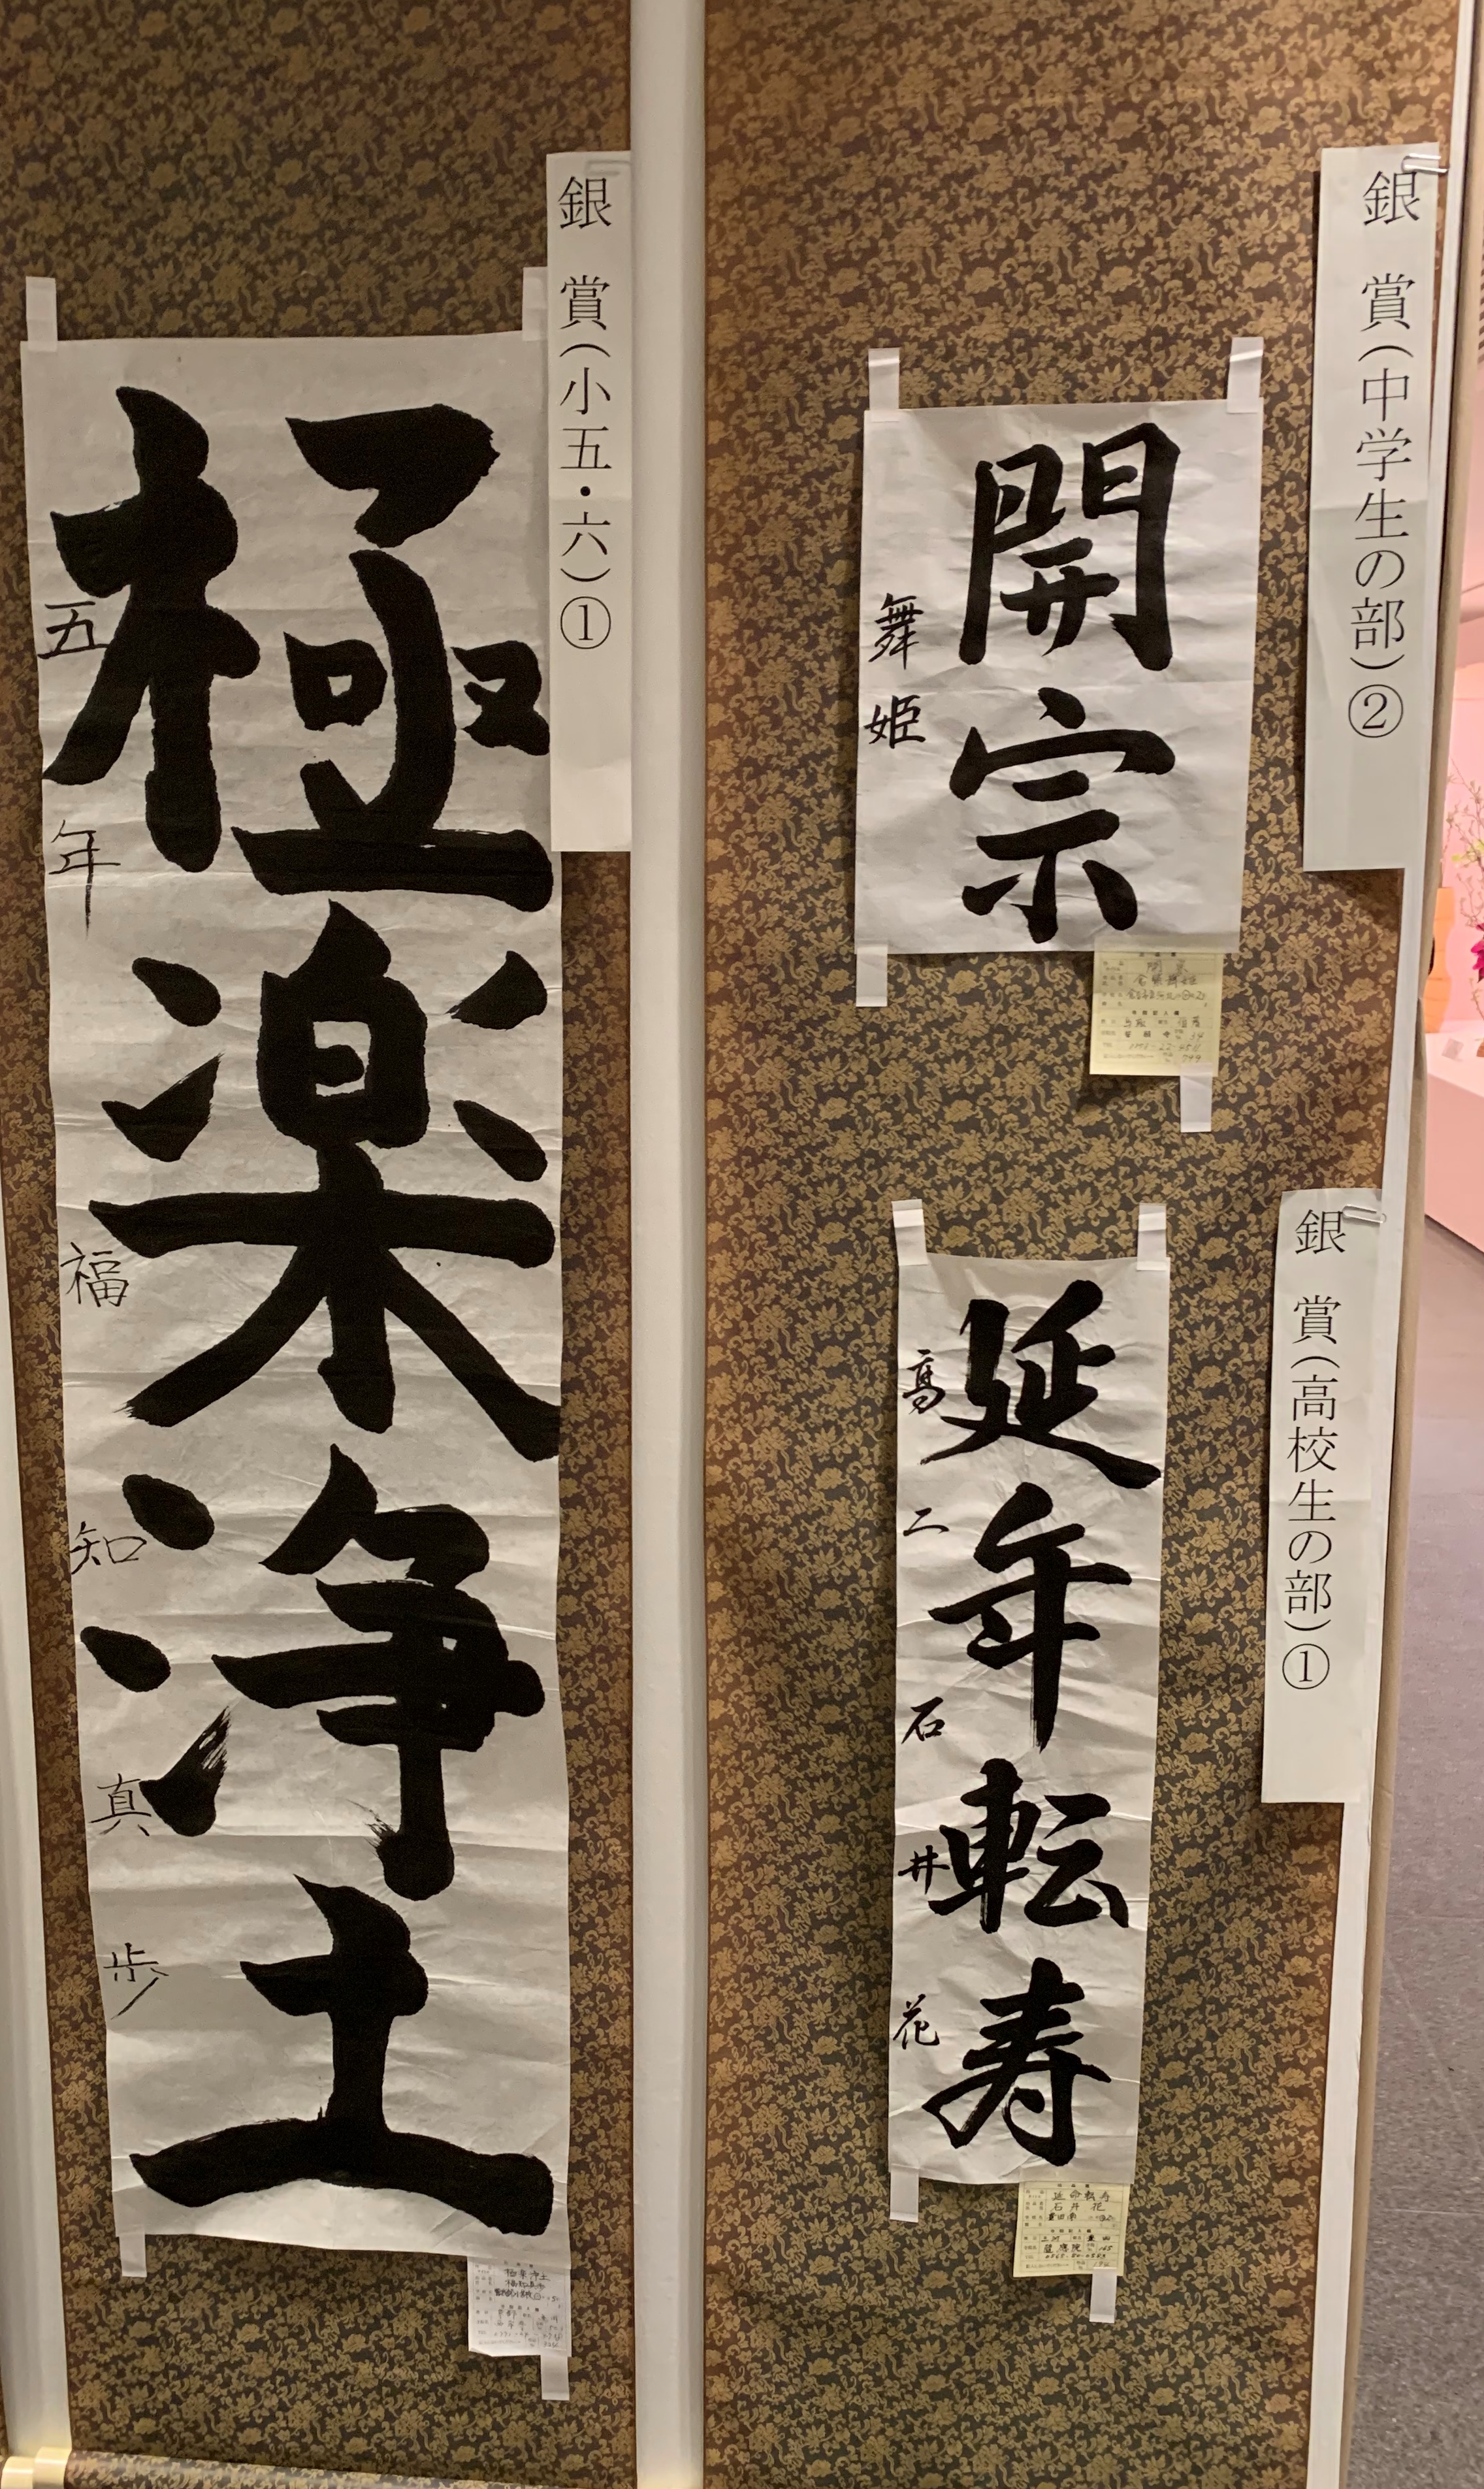 銀 賞(中学生の部)②
開宗
舞姫
銀 賞(高校生の部)①
延年転寿
高二 石井 花
延命転寿
石井 花
銀 賞(小五・六)①
極楽浄土
五年 福知真歩
極楽浄土